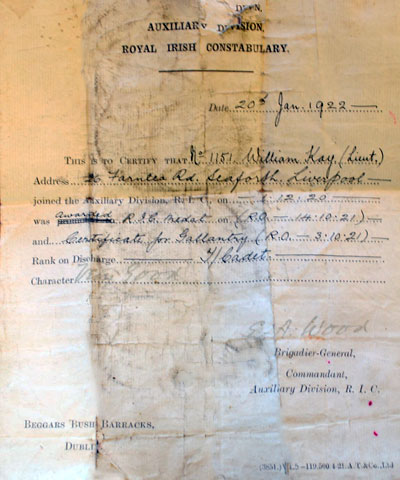 AUXILIARY DIVISION,
ROYAL IRISH CONSTABULARY.
Date 20th Jan. 1922
THIS IS TO CERTIFY THAT No 1151. William Kay (Lieut.)
Address Farnlea Rd. Seaforth. Liverpool
joined the Auxiliary Division, R.I.C. on 12.20
was awarded R.I.C. Medal (R.O. — 14.10.21)
and Certificate for Gallantry (R.O. — 3.10.21)
Rank on Discharge T/Cadet.
Character Very Good
Wood
Brigadier-General,
Commandant,
Auxiliary Division, R.I.C.
BEGGARS BUSH BARRACKS,